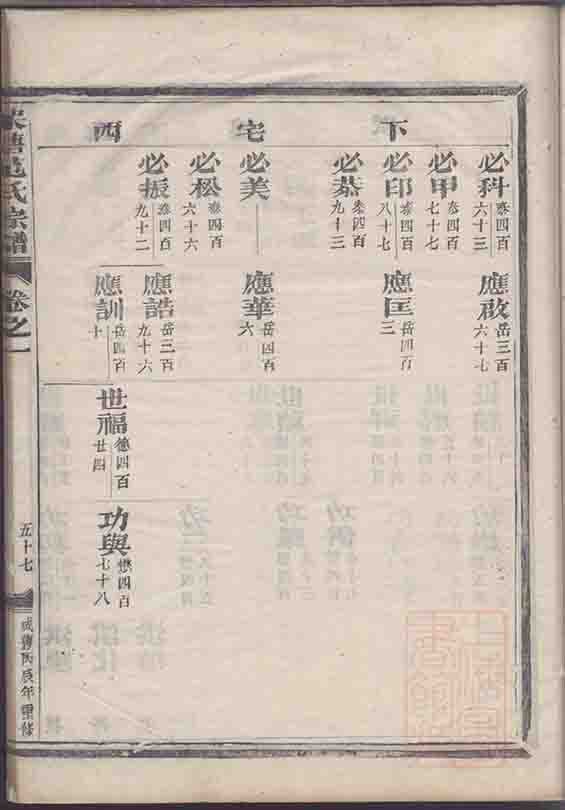 下宅西
必科 泰四百六十三
必甲 泰四百七十七
必印 泰四百八十七
必綦 泰四百九十三
必美
必松 泰四百六十六
必振 泰四百九十二
應啟 岳三百六十七
應匡 岳四百三
應華 岳四百六
應誥 岳三百九十六
應訓 岳四百十
世福 德四百廿四
功與 懋四百七十八
塘范氏宗譜
卷之一
五十七
咸豐丙辰年重修